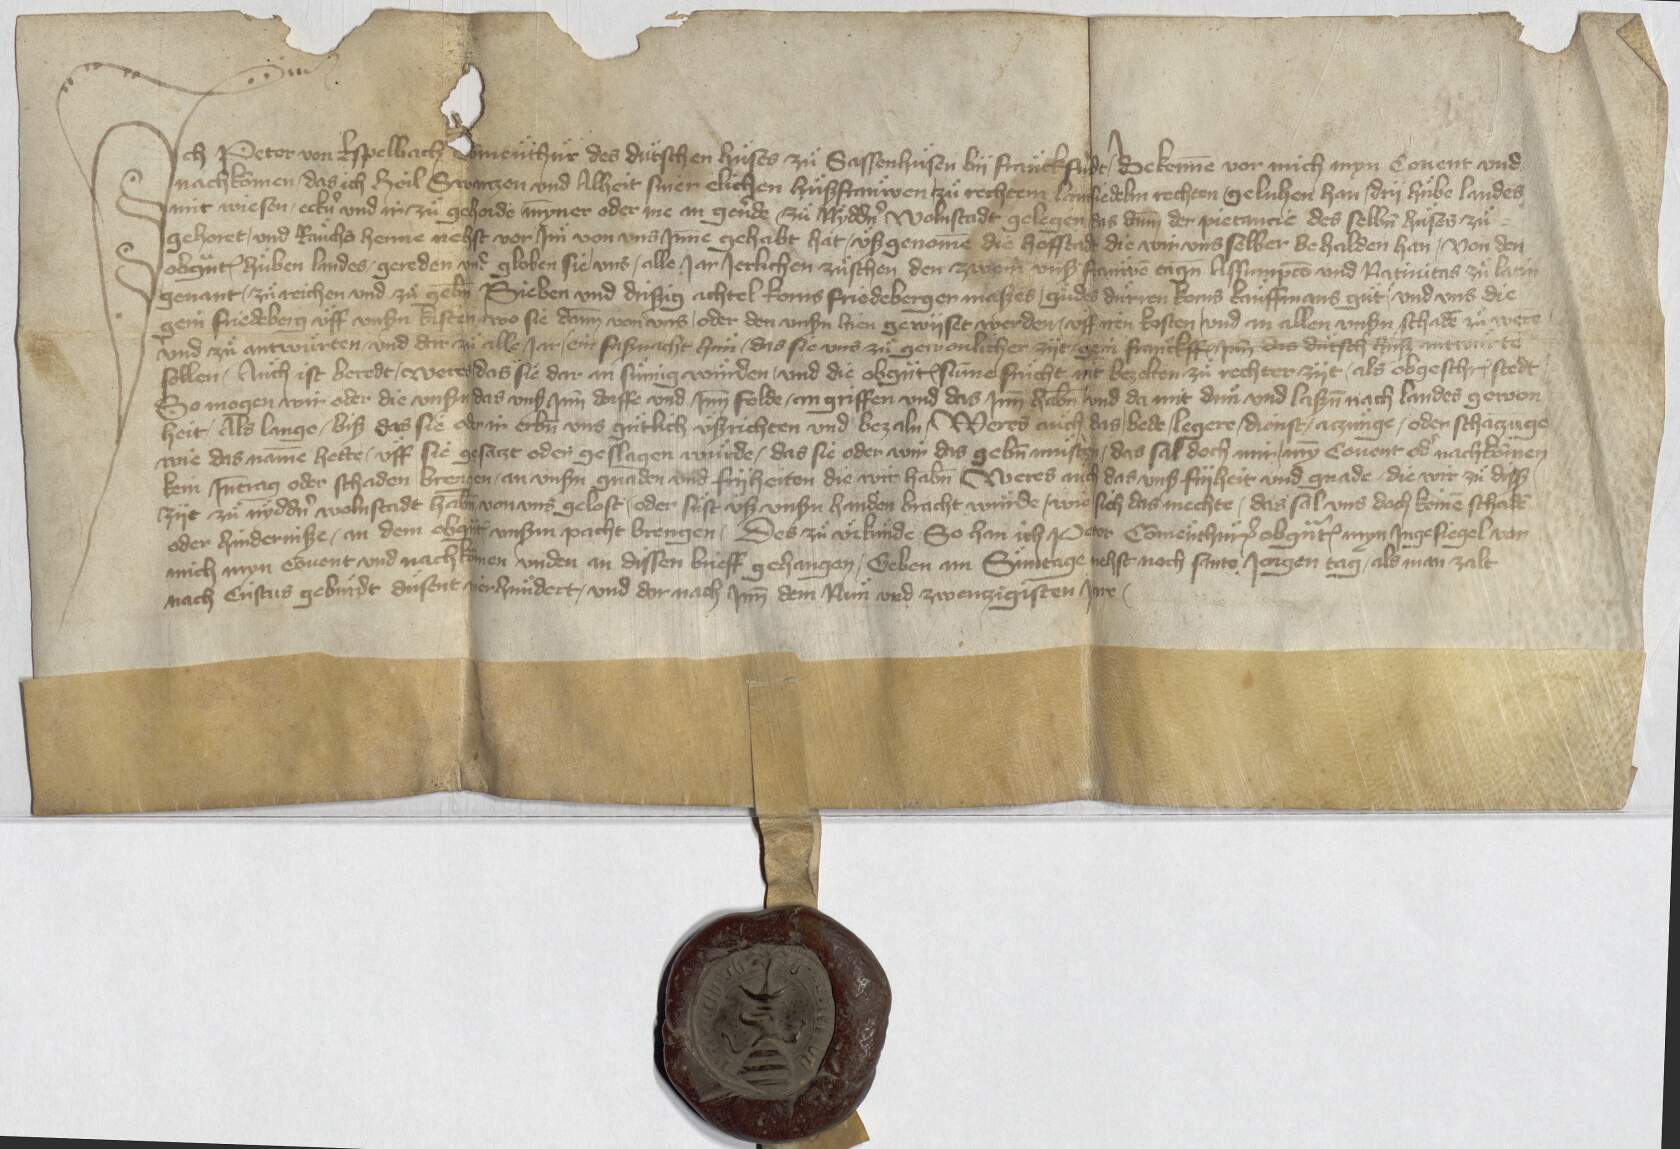 Ich Peter von Espelbach Comenthur des dutschen huses zu Sassenhusen bij franckfudt / Bekenne vor mich myn Covent und
nachkomen / das ich Heil Swarzen und Alheit siner elichen hußfrauwen zu rechtem lantsiedeln rechten geluhen han / drij hube landes
mit wiesen / ecker und in zu gehorde myner oder me an geverde zu Nyddern Wolnstadt gelegen das dann der pietancie des selben huses zu
gehoret / und Rauchs henne nehst vor jm von uns jnne gehabt hat / ußgenomen die hoffstadt die wir uns selber behalden han / Von den
obgnten huben landes / gereden und globen sie uns / alle Jar Jerlichen zuschen den zwein unser frauwen tagen Assumpcio und Nativitas zu latin
genant / zu reichen und zu geben Sieben und drißig achtel korns friedeberger maßes / gudes durren korns kauffmans gut / und uns die
gein friedeberg uff unsern kasten wo sie dann von uns / oder den unsern hien gewijset werden / uff iren kosten und an allen unsern schaden zu were
und zu antwurten und dar zu alle Jar / ein faßnacht hun / das sie uns zu gewonlicher zijt / gein franckfurt jnn das dutsch huß antwurten
sollen / Auch ist beredt / weres das sie dar an sumig wurden / und die obgnten summe frucht nit bezelten zu rechter zijt / als obgeschr stedt
So mogen wir oder die unsern das unß jnn dorffe und jnn felde / angriffen und das jnn haben und da mit dun und laßen nach landes gewon
heit / Als lange / biß das sie oder ir erben uns gutlich ußrichten und bezaln / Weres auch das bede / legere / dienst / aczunge / oder schaczunge
wie das name hette / uff sie gesaczt oder geslagen wurde / das sie oder wir das geben musten / das sal doch mir / myn Covent oder nachkomen
kein Intrag oder schaden brengen / an unsern gnaden und frijheiten die wir haben Weres auch das unß frijheit und gnade / die wir zu disser
zijt zu nyddern wolnstadt haben von uns gelost / oder sust uß unsern handen bracht wurde / wie sich das mechte / das sal uns doch keinen schaden
oder hinderniße / an dem obgnten unserm pacht brengen / Des zu urkunde So han ich Peter Comenthur obgnter myn Ingesiegel von
mich myn Covent und nachkomen unden an dissen brieff gehangen / Geben am Suntage nehst noch sante Jorgen tag / als man zalt
nach Cristus geburdt dusent vierhundert / und dar nach jnn dem Nun und zwenzigisten Jare